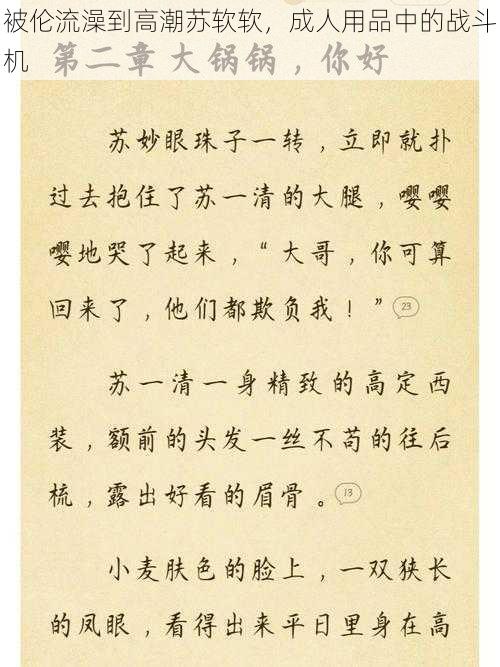 被伦流澡到高潮苏软软，成人用品中的战斗
机
第二章 大锅锅，你好
苏妙眼珠子一转，立即就扑
过去抱住了苏一清的大腿，嘤嘤
嘤地哭了起来，“大哥，你可算
回来了，他们都欺负我！”
23
苏一清一身精致的高定西
装，额前的头发一丝不苟的往后
梳，露出好看的眉骨。
13
小麦肤色的脸上，一双狭长
的凤眼，看得出来平日里身在高